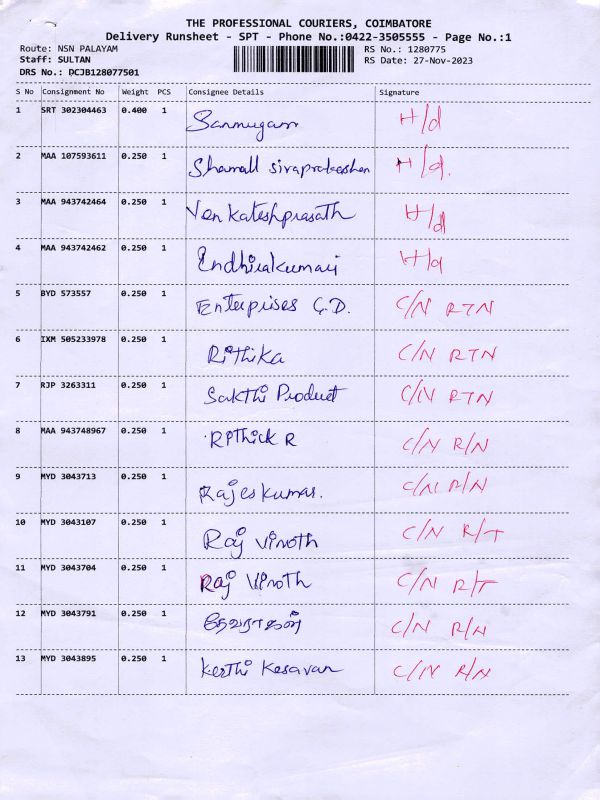 THE PROFESSIONAL COURIERS, COIMBATORE
Delivery Runsheet - SPT - Phone No.:0422-3505555 - Page No.:1
Route: NSN PALAYAM RS No.: 1280775
Staff: SULTAN RS Date: 27-Nov-2023
DRS No.: DCJB128077501
S No Consignment No Weight PCS Consignee Details Signature
1 SRT 302304463 0.400 1 Sanmugam H/d
2 MAA 107593611 0.250 1 Shamall sivaprakashan H/d.
3 MAA 943742464 0.250 1 Venkateshprasath H/d
4 MAA 943742462 0.250 1 Endhirakumari H/d
5 BYD 573557 0.250 1 Enterprises G.D. C/N RTN
6 IXM 505233978 0.250 1 Rithika C/N RTN
7 RJP 3263311 0.250 1 Sakthi Product C/N RTN
8 MAA 943748967 0.250 1 Rithick R C/N R/N
9 MYD 3043713 0.250 1 Rajeskumar. C/N R/N
10 MYD 3043107 0.250 1 Raj Vinoth C/N R/T
11 MYD 3043704 0.250 1 Raj Vinoth C/N R/T
12 MYD 3043791 0.250 1 தேவராகன் C/N R/N
13 MYD 3043895 0.250 1 Kerthi Kesavan C/N R/N